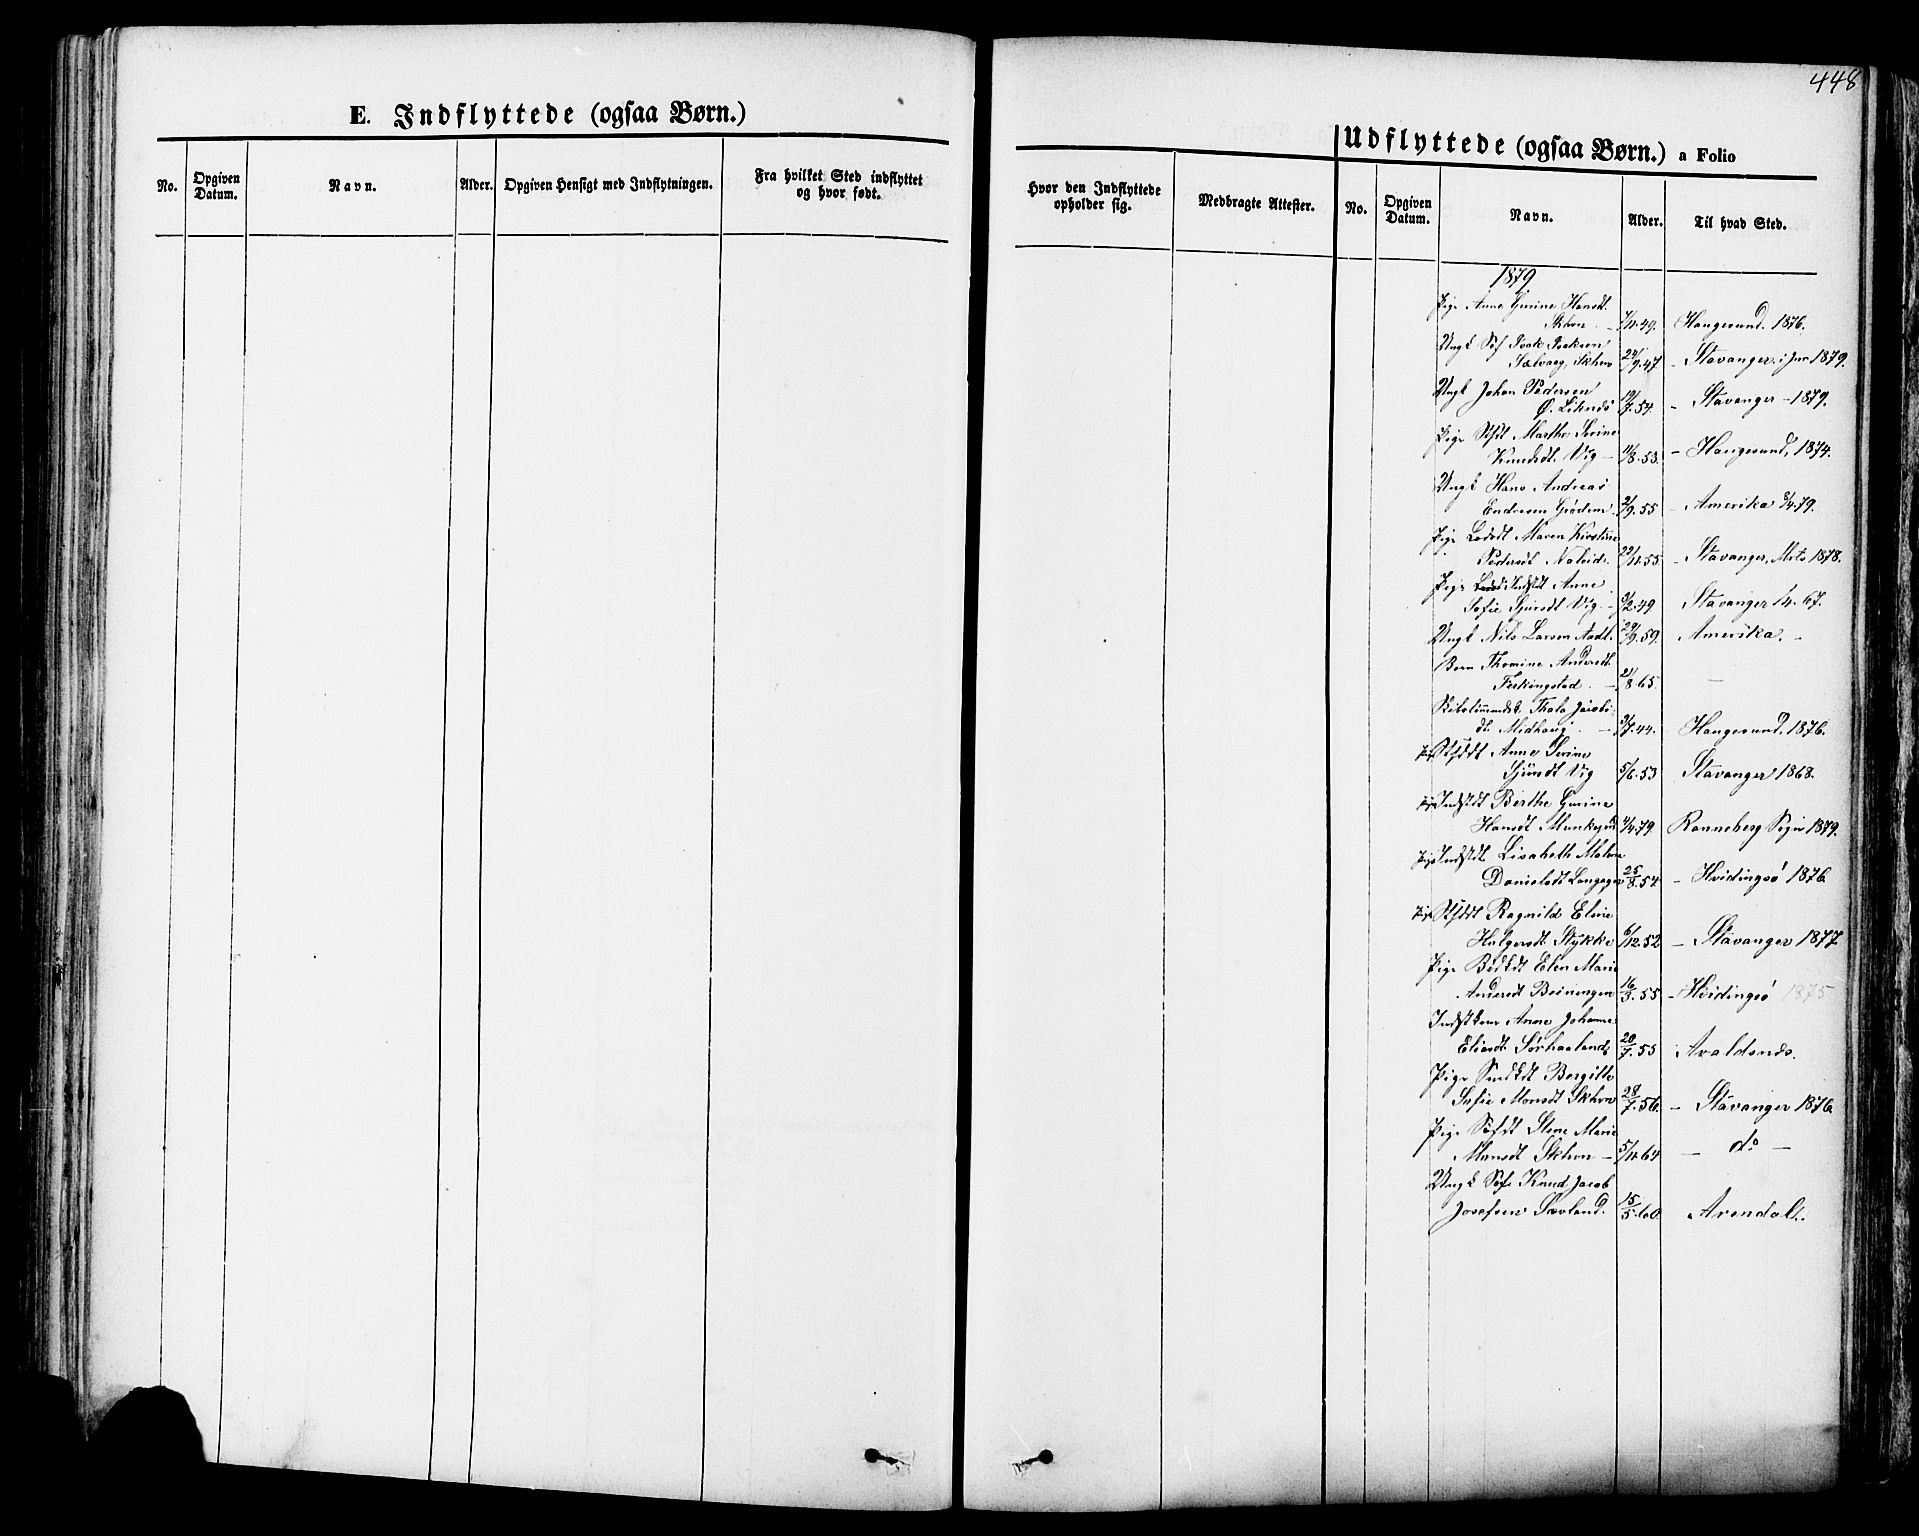 448
E. Indflyttede (ogsaa Børn.)
No.
Opgiven Datum.
Navn.
Alder.
Opgiven Hensigt med Indflytningen.
Fra hvilket Sted indflyttet og hvor født.
Hvor den Indflyttede opholder sig.
Medbragte Attester.
Udflyttede (ogsaa Børn.) a Folio
No.
Opgiven Datum.
Navn.
Alder.
Til hvad Sted.
1879
Pige Anne Gurine Hansdt.
Skhvn. 7/11.49. Haugesund. 1876.
Ungk Søf Isak Isaksen
Salvaag, Skhvn 24/9.47 - Stavanger i Jan 1879.
Ungk Johan Pedersen
Ø. Liknæs 19/7.54 - Stavanger - 1879.
Pige Marthe Serine
Knudsdt. Vig - 11/8.53. - Haugesund, 1874.
Ungk Hans Andreas
Endresen Grødem. 2/9.55 - Amerika 8/4.79.
Pige Maren Kirstine
Pedersdt 22/11.55. - Stavanger, Mrts 1878.
Pige Indstdt Anne
Sofie Sjursdt Vig. - 9/2.49 Stavanger 14. 67.
Ungk Nils Larsen 29/9.59. Amerika. -
Barn Thomine Andersdt.
Ferkingstad. - 21/8.65. -
Thala Jacobs
dt. Midhaug. - 9/7.44. Haugesund, 1876.
Anne Serine
Sjursdt Vig 5/6.53 Stavanger 1868.
Indstdt Berthe Gurine
Hansdt 4/4.79 Ranneberg Sogn 1879.
Indstdt Lisabeth Malene
Danielsdt 25/8.54 - Hvidingsø 1876
Ragnild Eline
Holgersdt Stykke 6/12.52 - Stavanger 1877
Pige Elen Marie
Andersdt 16/3.55 - Hvidingsø 1875
Anne Johanne
Eliasdt. Sørhaaland 20/7.55 Avaldsnæs.
Pige Bergitte
Sofie Monsdt Skhvn 28/7.56. - Stavanger 1876
Pige Søfdt Stine Marie
Monsdt Skhvn - 5/11.64 - do -
Ungk Søfs Knud Jacob
Josefsen Sævland. 15/5.60. Arendal.